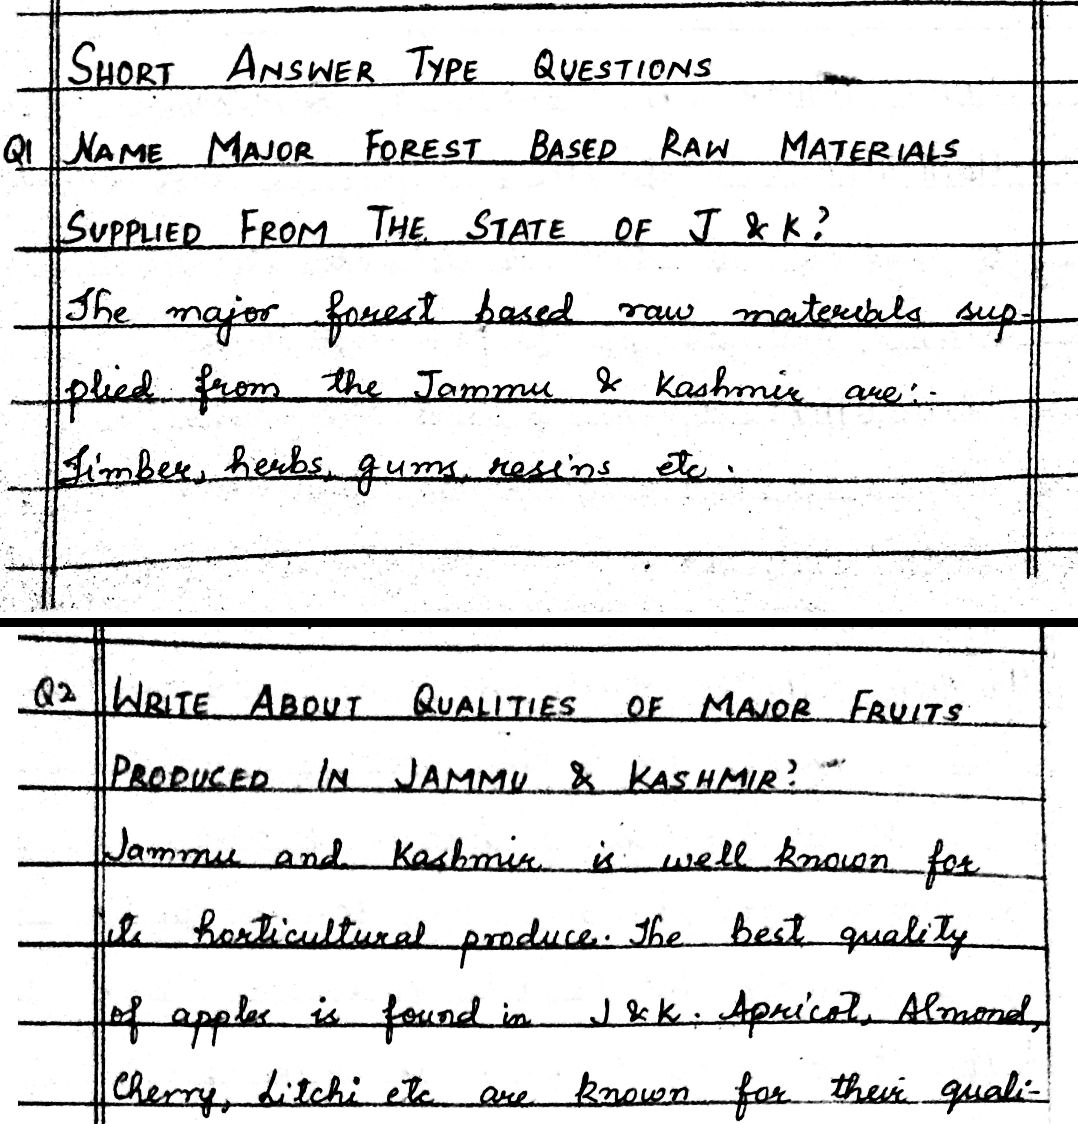 SHORT ANSWER TYPE QUESTIONS
Q1 NAME MAJOR FOREST BASED RAW MATERIALS
SUPPLIED FROM THE STATE OF J & K?
The major forest based raw materials sup-
plied from the Jammu & Kashmir are:-
Timber, herbs, gums, resins etc.
Q2 WRITE ABOUT QUALITIES OF MAJOR FRUITS
PRODUCED IN JAMMU & KASHMIR?
Jammu and Kashmir is well known for
its horticultural produce. The best quality
of apples is found in J & K. Apricot, Almond,
Cherry, Litchi etc are known for their quali-